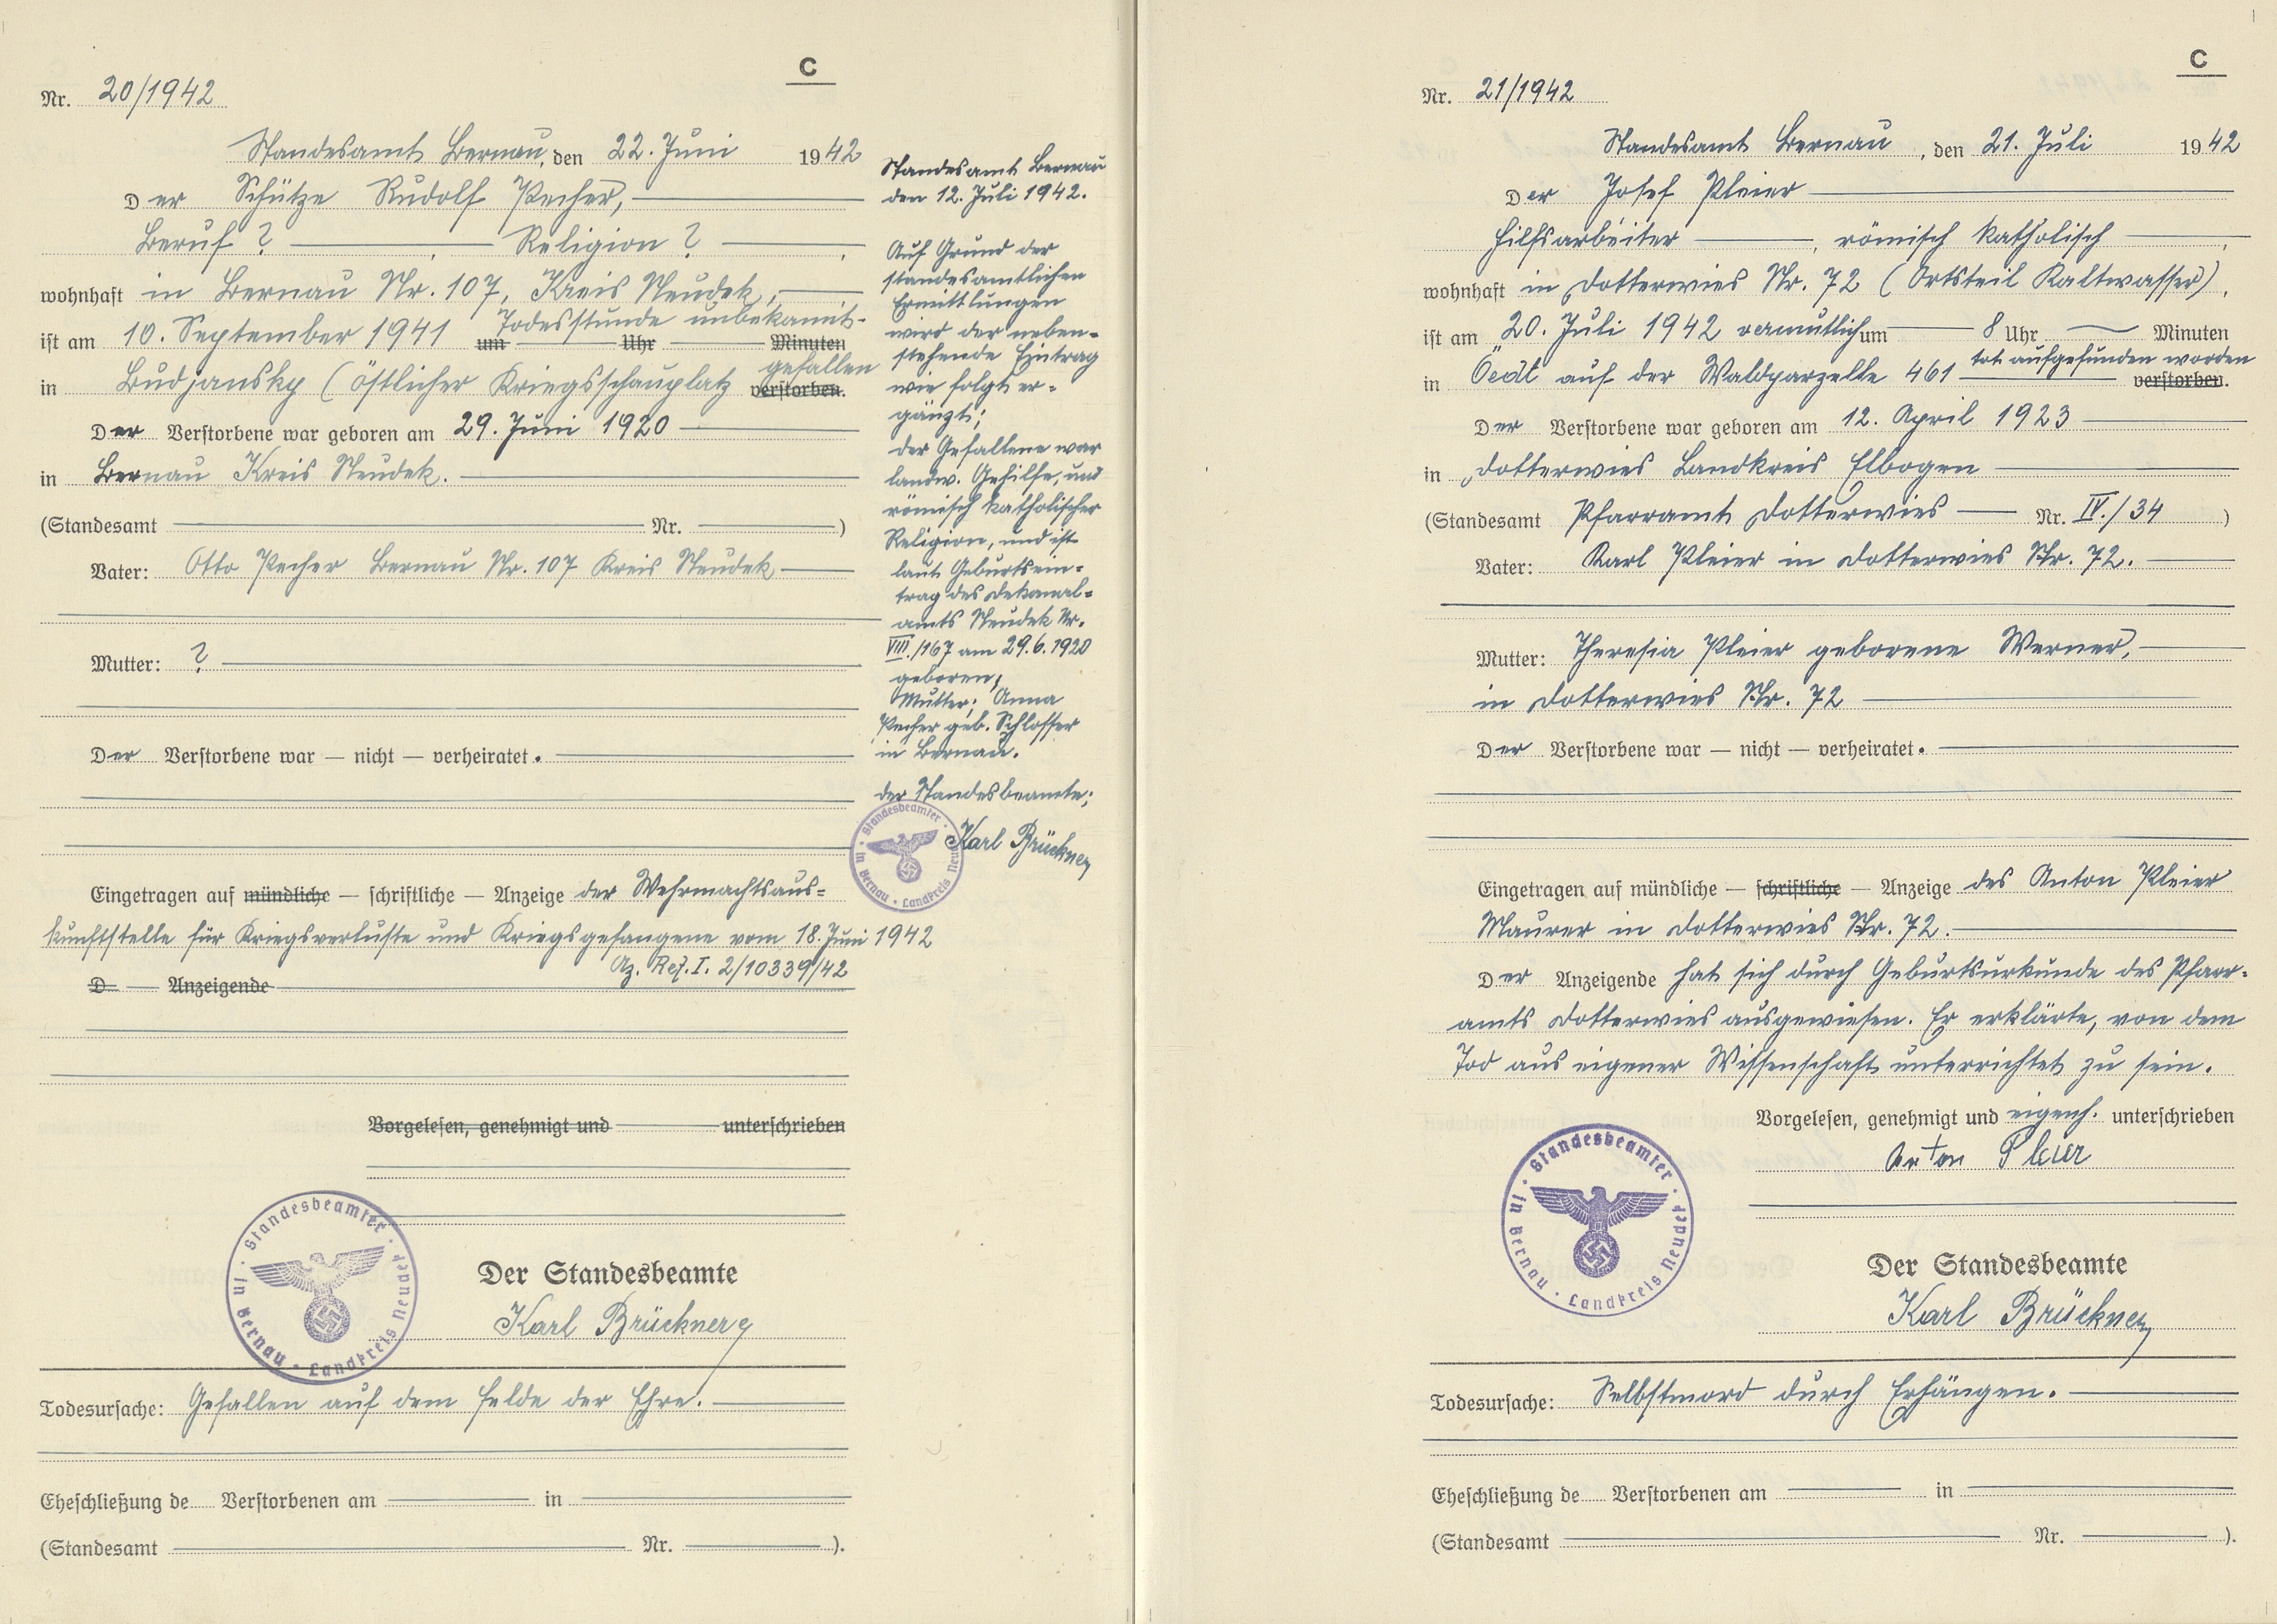 C
Nr. 20/1942
Standesamt Bernau, den 22. Juni 1942
Der Schütze Rudolf Pecher,
Beruf ? , Religion ? ,
wohnhaft in Bernau Nr. 107, Kreis Neudek,
ist am 10. September 1941 um Uhr Minuten Todesstunde unbekannt.
in Budjansky (östlicher Kriegsschauplatz gefallen verstorben.
Der Verstorbene war geboren am 29. Juni 1920
in Bernau Kreis Neudek.
(Standesamt Nr. )
Vater: Otto Pecher Bernau Nr. 107 Kreis Neudek
Mutter: ?
Der Verstorbene war — nicht — verheiratet.
Eingetragen auf mündliche — schriftliche — Anzeige der Wehrmachtsaus=
kunftstelle für Kriegsverluste und Kriegsgefangene vom 18. Juni 1942
Az. Ref. I. 2/10339/42
D Anzeigende
Vorgelesen, genehmigt und unterschrieben
Standesbeamter in Bernau Landkreis Neudek
Der Standesbeamte
Karl Brückner
Todesursache: Gefallen auf dem Felde der Ehre.
Eheschließung de Verstorbenen am in
(Standesamt Nr. ).
Standesamt Bernau
den 12. Juli 1942.
Auf Grund der
standesamtlichen
Ermittlungen
wird der neben=
stehende Eintrag
wie folgt er=
gänzt;
der Gefallene war
landw. Gehilfe, und
römisch katholischer
Religion, und ist
laut Geburtsein=
trag des Dekanal=
amts Neudek Nr.
VIII./167 am 29.6.1920
geboren;
Mutter; Anna
Pecher geb. Schlosser
in Bernau.
der Standesbeamte;
Karl Brückner
Standesbeamter in Bernau Landkreis Neudek
C
Nr. 21/1942
Standesamt Bernau, den 21. Juli 1942
Der Josef Pleier
Hilfsarbeiter , römisch katholisch ,
wohnhaft in Dotterwies Nr. 72 (Ortsteil Kaltwasser),
ist am 20. Juli 1942 vermutlich um 8 Uhr Minuten
in Oedt auf der Waldparzelle 461 tot aufgefunden worden verstorben.
Der Verstorbene war geboren am 12. April 1923
in Dotterwies Landkreis Elbogen
(Standesamt Pfarramt Dotterwies Nr. IV./34 )
Vater: Karl Pleier in Dotterwies Nr. 72.
Mutter: Theresia Pleier geborene Werner,
in Dotterwies Nr. 72
Der Verstorbene war — nicht — verheiratet.
Eingetragen auf mündliche — schriftliche — Anzeige des Anton Pleier
Maurer in Dotterwies Nr. 72.
Der Anzeigende hat sich durch Geburtsurkunde des Pfarr=
amts Dotterwies ausgewiesen. Er erklärte, von dem
Tod aus eigener Wissenschaft unterrichtet zu sein.
Vorgelesen, genehmigt und eigenh. unterschrieben
Anton Pleier
Standesbeamter in Bernau Landkreis Neudek
Der Standesbeamte
Karl Brückner
Todesursache: Selbstmord durch Erhängen.
Eheschließung de Verstorbenen am in
(Standesamt Nr. ).